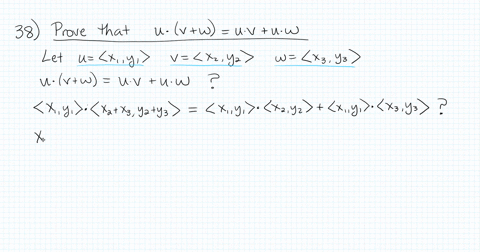 38) Prove that u·(v+w) = u·v + u·w
Let u = <x₁,y₁> v = <x₂,y₂> w = <x₃,y₃>
u·(v+w) = u·v + u·w ?
<x₁,y₁>·<x₂+x₃, y₂+y₃> = <x₁,y₁>·<x₂,y₂> + <x₁,y₁>·<x₃,y₃> ?
x